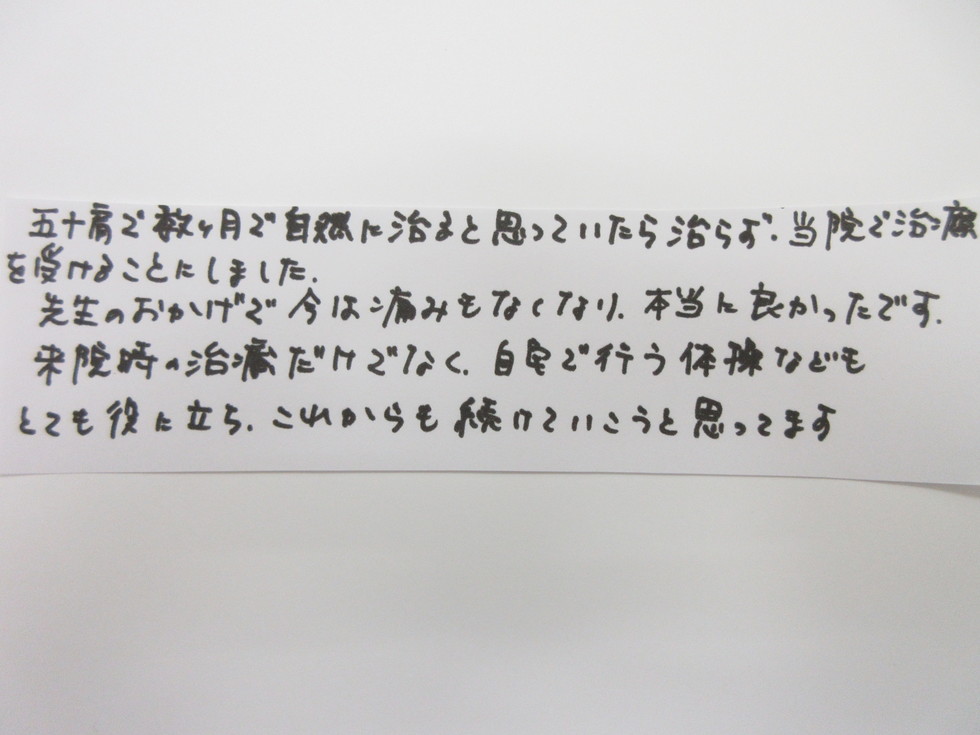 五十肩で数ヶ月で自然に治ると思っていたら治らず、当院で治療
を受けることにしました。
先生のおかげで今は痛みもなくなり、本当に良かったです。
来院時の治療だけでなく、自宅で行う体操なども
とても役に立ち、これからも続けていこうと思ってます